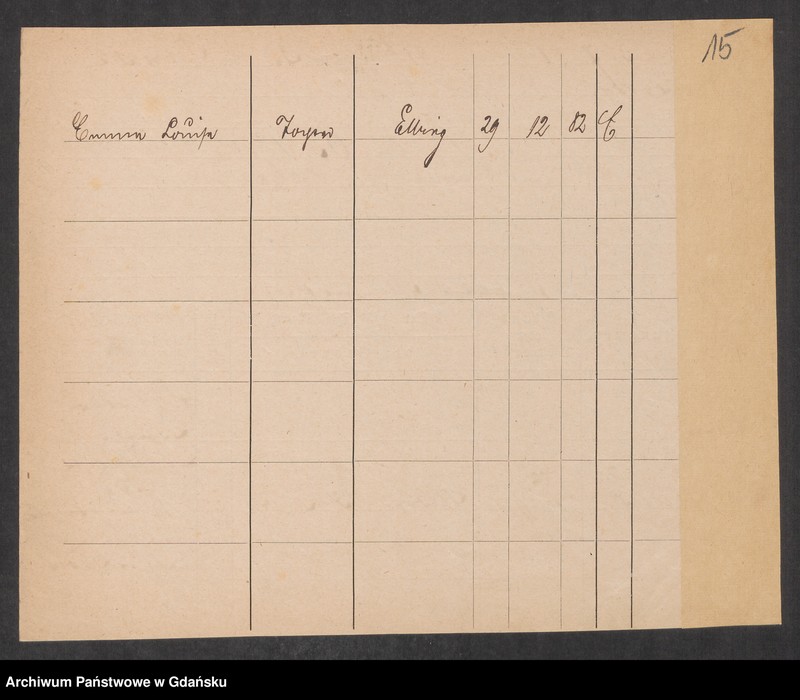 15
Emma Louise Elbing 29 12 82
Archiwum Państwowe w Gdańsku